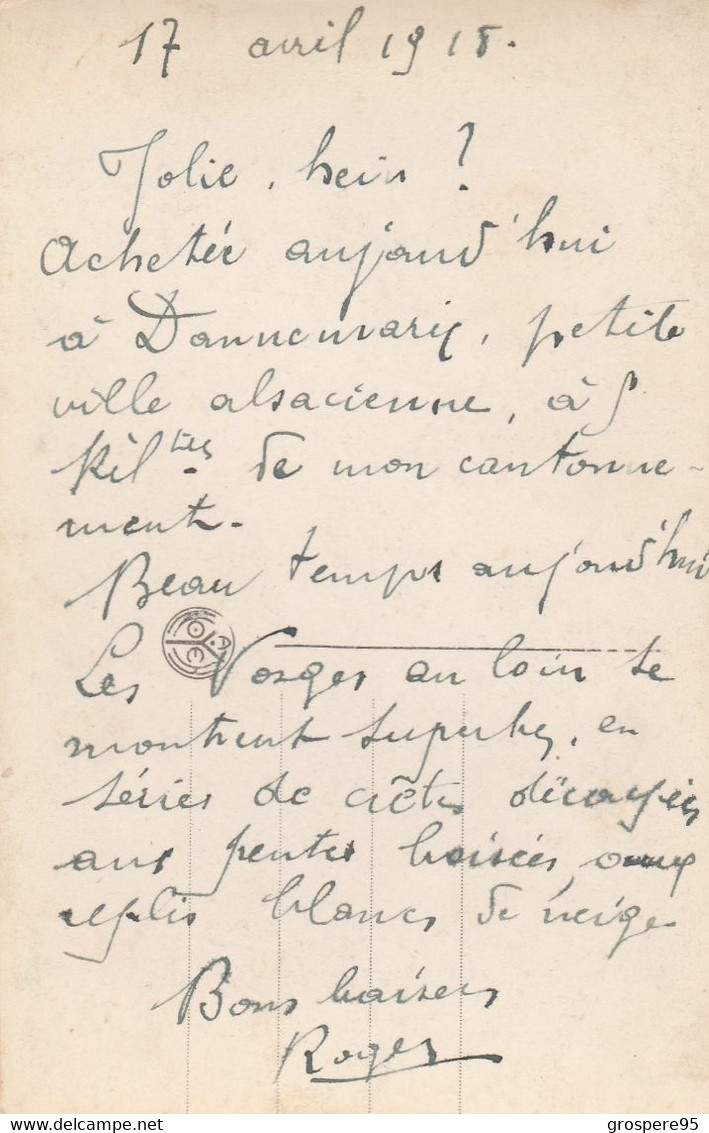 17 avril 1918.
Jolie, hein ?
Achetée aujourd'hui
à Dannemarie, petite
ville alsacienne, à
kil^tres de mon cantonne-
ment.
Beau temps aujourd'hui
Les Vosges au loin se
montrent superbes, en
séries de crêtes
aux pentes boisées, aux
replis blancs de neige
Bons baisers
Roger
www.delcampe.net
grospere95